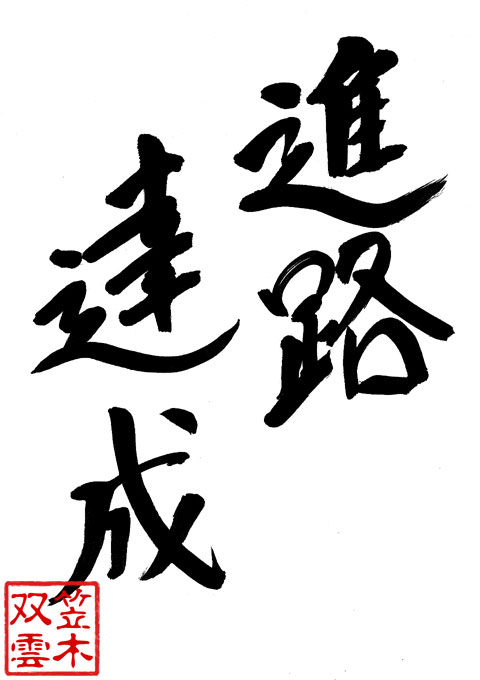 進路
達成
笠木
双雲